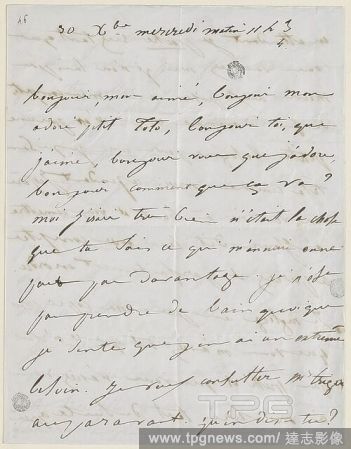 30 Xbre mercredi matin 11 h 3/4
bonjour, mon aimé, bonjour mon
adoré ptit Toto, bonjour toi, que
j'aime, bonjour vous que j'adore,
bonjour comment que ça va ?
moi très bien n'était la chose
que tu sais ce qui m'ennuie
pas davantage. je n'ose
pas prendre de bain quoique
je sente que j'en ai un extrême
besoin. Je veux consulter m. triger
auparavant. qu'en dis-tu ?
TPG
www.tpgnews.com / 達志影像